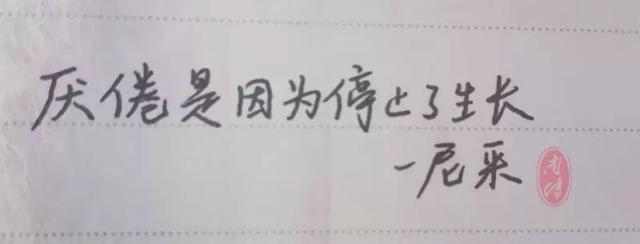 厌倦是因为停止了生长
—尼采